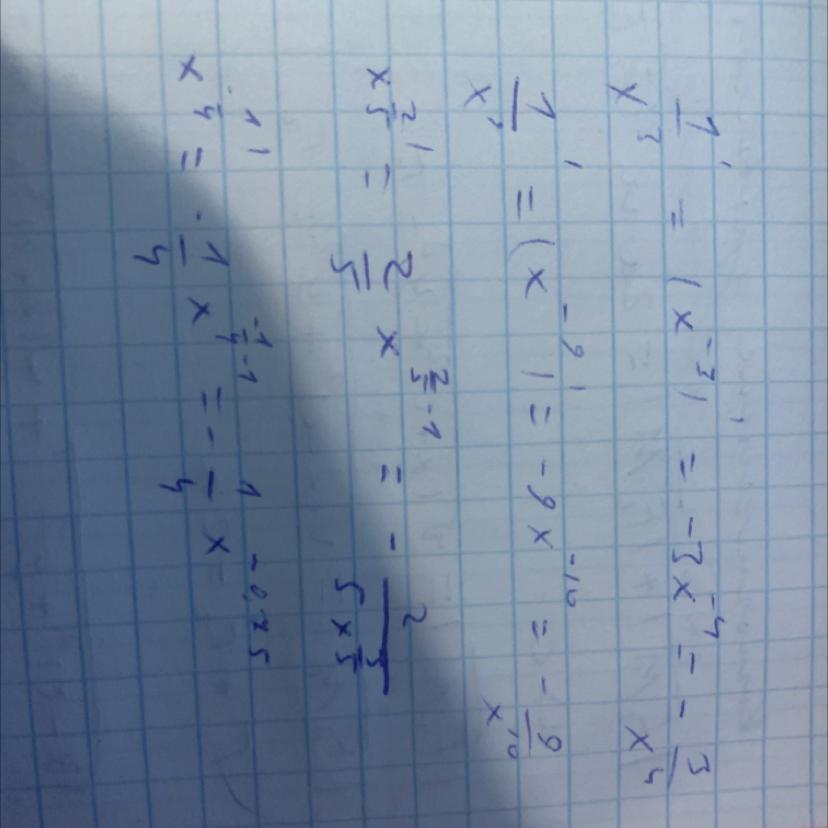 1/x³ ' = (x⁻³)' = -3x⁻⁴ = - 3/x⁴
1/x⁹ ' = (x⁻⁹)' = -9x⁻¹⁰ = - 9/x¹⁰
x^(2/5) ' = 2/5 x^(2/5 - 1) = - 2/(5x^(3/5))
x^(1/4) ' = - 1/4 x^(-1/4 - 1) = - 1/4 x^(-0,75)